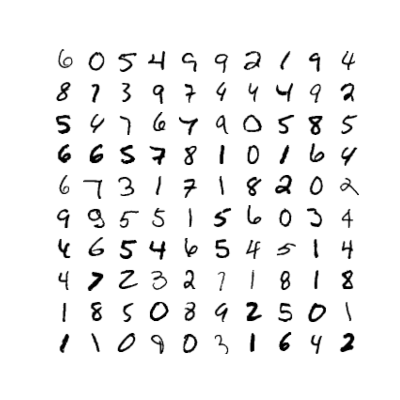 6 0 5 4 9 9 2 1 9 4
8 7 3 9 7 4 4 4 9 2
5 4 7 6 7 9 0 5 8 5
6 6 5 7 8 1 0 1 6 4
6 7 3 1 7 1 8 2 0 2
9 9 5 5 1 5 6 0 3 4
4 6 5 4 6 5 4 5 1 4
4 7 2 3 2 7 1 8 1 8
1 8 5 0 8 9 2 5 0 1
1 1 0 9 0 3 1 6 4 2